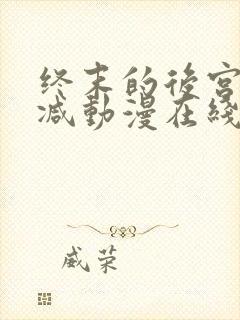 终末的後宫
减動漫在綫
威荣